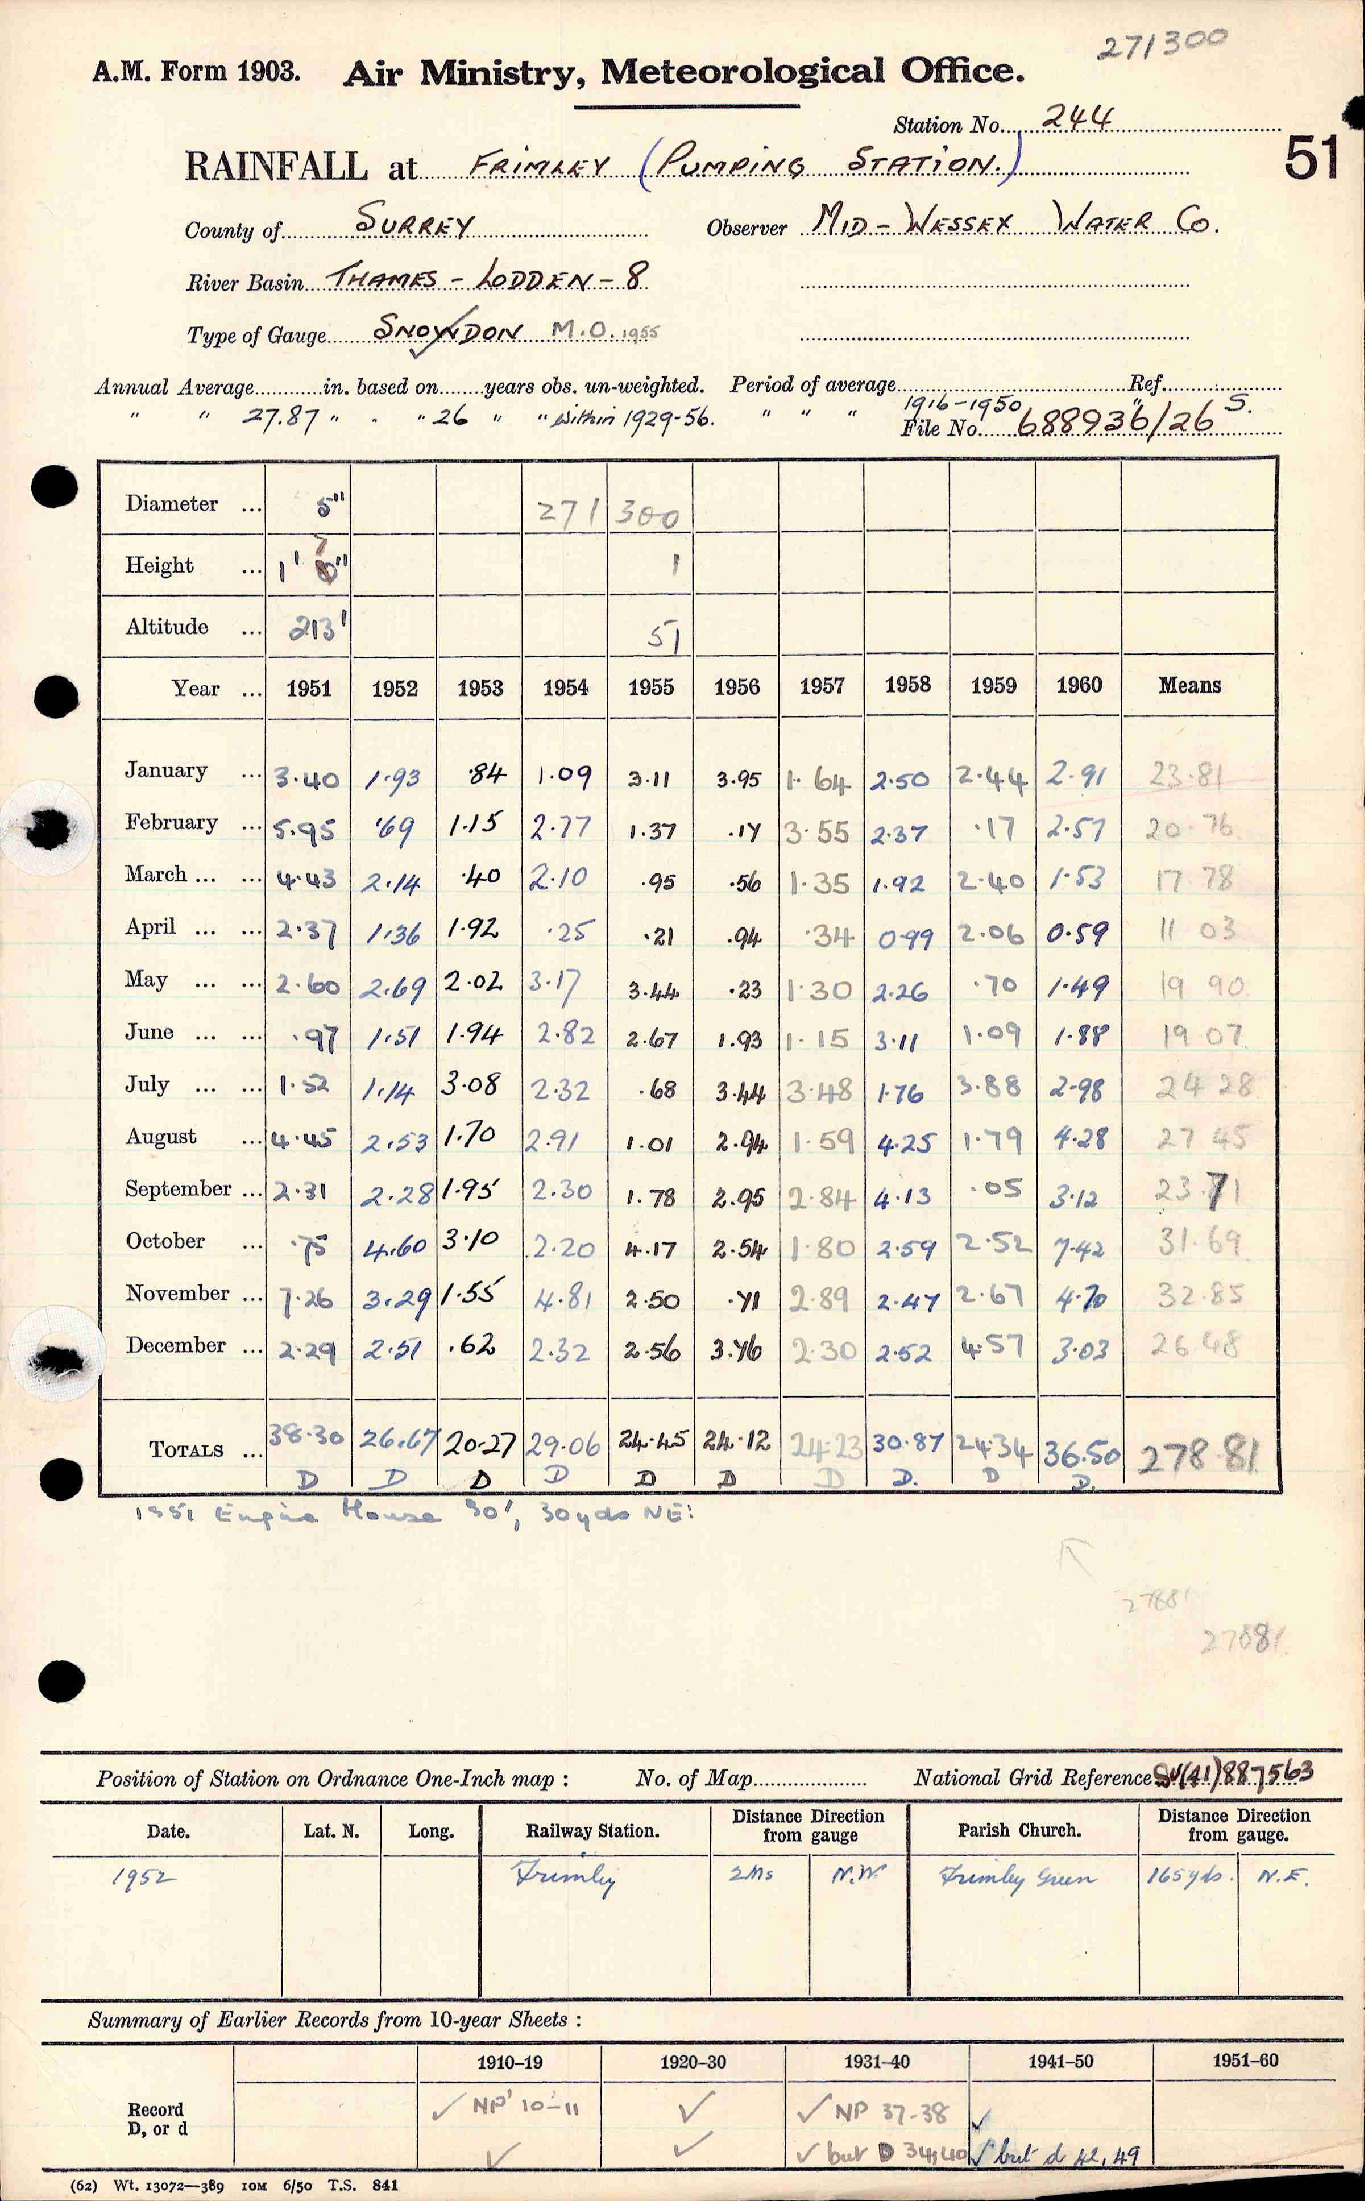 271300
A.M. Form 1903. Air Ministry, Meteorological Office.
Station No. 244
51
RAINFALL at FRIMLEY (PUMPING STATION.)
County of SURREY Observer MID-WESSEX WATER Co.
River Basin THAMES - LODDEN - 8
Type of Gauge SNOWDON M.O. 1955
Annual Average in. based on years obs. un-weighted. Period of average Ref.
" " 27.87 " " 26 " " within 1929-56. " " " 1916-1950 " S.
File No. 688936/26
Diameter ... 5" 271 300
Height ... 1' 7" 1
Altitude ... 213' 51
Year ... 1951 1952 1953 1954 1955 1956 1957 1958 1959 1960 Means
January ... 3.40 1.93 .84 1.09 3.11 3.95 1.64 2.50 2.44 2.91 23.81
February ... 5.95 .69 1.15 2.77 1.37 .17 3.55 2.37 .17 2.57 20.76
March ... ... 4.43 2.14 .40 2.10 .95 .56 1.35 1.92 2.40 1.53 17.78
April ... ... 2.37 1.36 1.92 .25 .21 .94 .34 0.99 2.06 0.59 11 03
May ... ... 2.60 2.69 2.02 3.17 3.44 .23 1.30 2.26 .70 1.49 19 90
June ... ... .97 1.51 1.94 2.82 2.67 1.93 1.15 3.11 1.09 1.88 19 07
July ... ... 1.52 1.14 3.08 2.32 .68 3.44 3.48 1.76 3.88 2.98 24 28
August ... 4.45 2.53 1.70 2.91 1.01 2.94 1.59 4.25 1.79 4.28 27 45
September ... 2.31 2.28 1.95 2.30 1.78 2.95 2.84 4.13 .05 3.12 23.71
October ... .75 4.60 3.10 2.20 4.17 2.54 1.80 2.59 2.52 7.42 31.69
November ... 7.26 3.29 1.55 4.81 2.50 .71 2.89 2.47 2.67 4.70 32.85
December ... 2.29 2.51 .62 2.32 2.56 3.76 2.30 2.52 4.57 3.03 26 48
TOTALS ... 38.30 26.67 20.27 29.06 24.45 24.12 24.23 30.87 24.34 36.50 278.81
D D D D D D D D. D D.
1951 Engine House 30', 30yds NE:
27881
27881
Position of Station on Ordnance One-Inch map : No. of Map National Grid Reference SU(41)887563
Date. Lat. N. Long. Railway Station. Distance Direction from gauge Parish Church. Distance Direction from gauge.
1952 Frimley 2Ms N.W. Frimley Green 165yds. N.E.
Summary of Earlier Records from 10-year Sheets :
1910–19 1920–30 1931–40 1941–50 1951–60
Record D, or d
✓ NP' 10-11 ✓ ✓ NP 37-38 ✓
✓ ✓ ✓ but D 34,40 ✓ but d 42, 49
(62) Wt. 13072—389 10M 6/50 T.S. 841